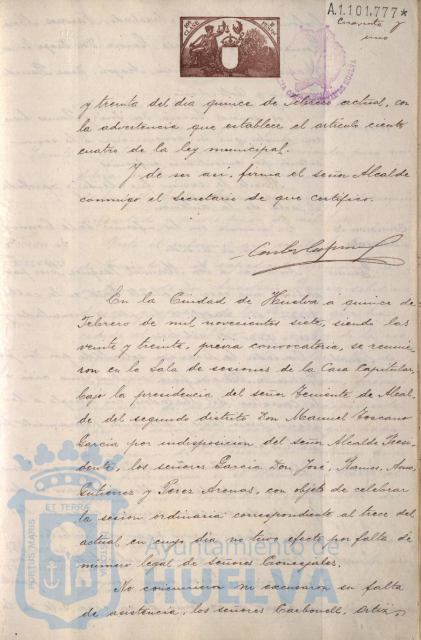 A.1.101.777*
Cuarenta y
uno
y treinta del dia quince de Febrero actual, con
la advertencia que establece el artículo ciento
cuatro de la ley municipal.
Y de ser asi, firma el señor Alcalde
conmigo el Secretario de que certifico.
En la Ciudad de Huelva á quince de
Febrero de mil novecientos siete, siendo las
veinte y treinta, previa convocatoria, se reunie-
ron en la Sala de sesiones de la Casa Capitular,
bajo la presidencia del señor Teniente de Alcal-
de del segundo distrito Don Manuel Toscano
Garcia por indisposicion del señor Alcalde Presi-
dente, los señores Garcia Don José, Ramos,
Gutierrez y Perez Arenas, con objeto de celebrar
la sesion ordinaria correspondiente al trece del
actual en cuyo dia no tuvo efecto por falta de
número legal de señores Concejales.
No concurrieron ni excusaron su falta
de asistencia, los señores Carbonell, Ortiz,
PORTUS MARIS
ET TERRÆ
CUSTODIA
Ayuntamiento de
HUELVA